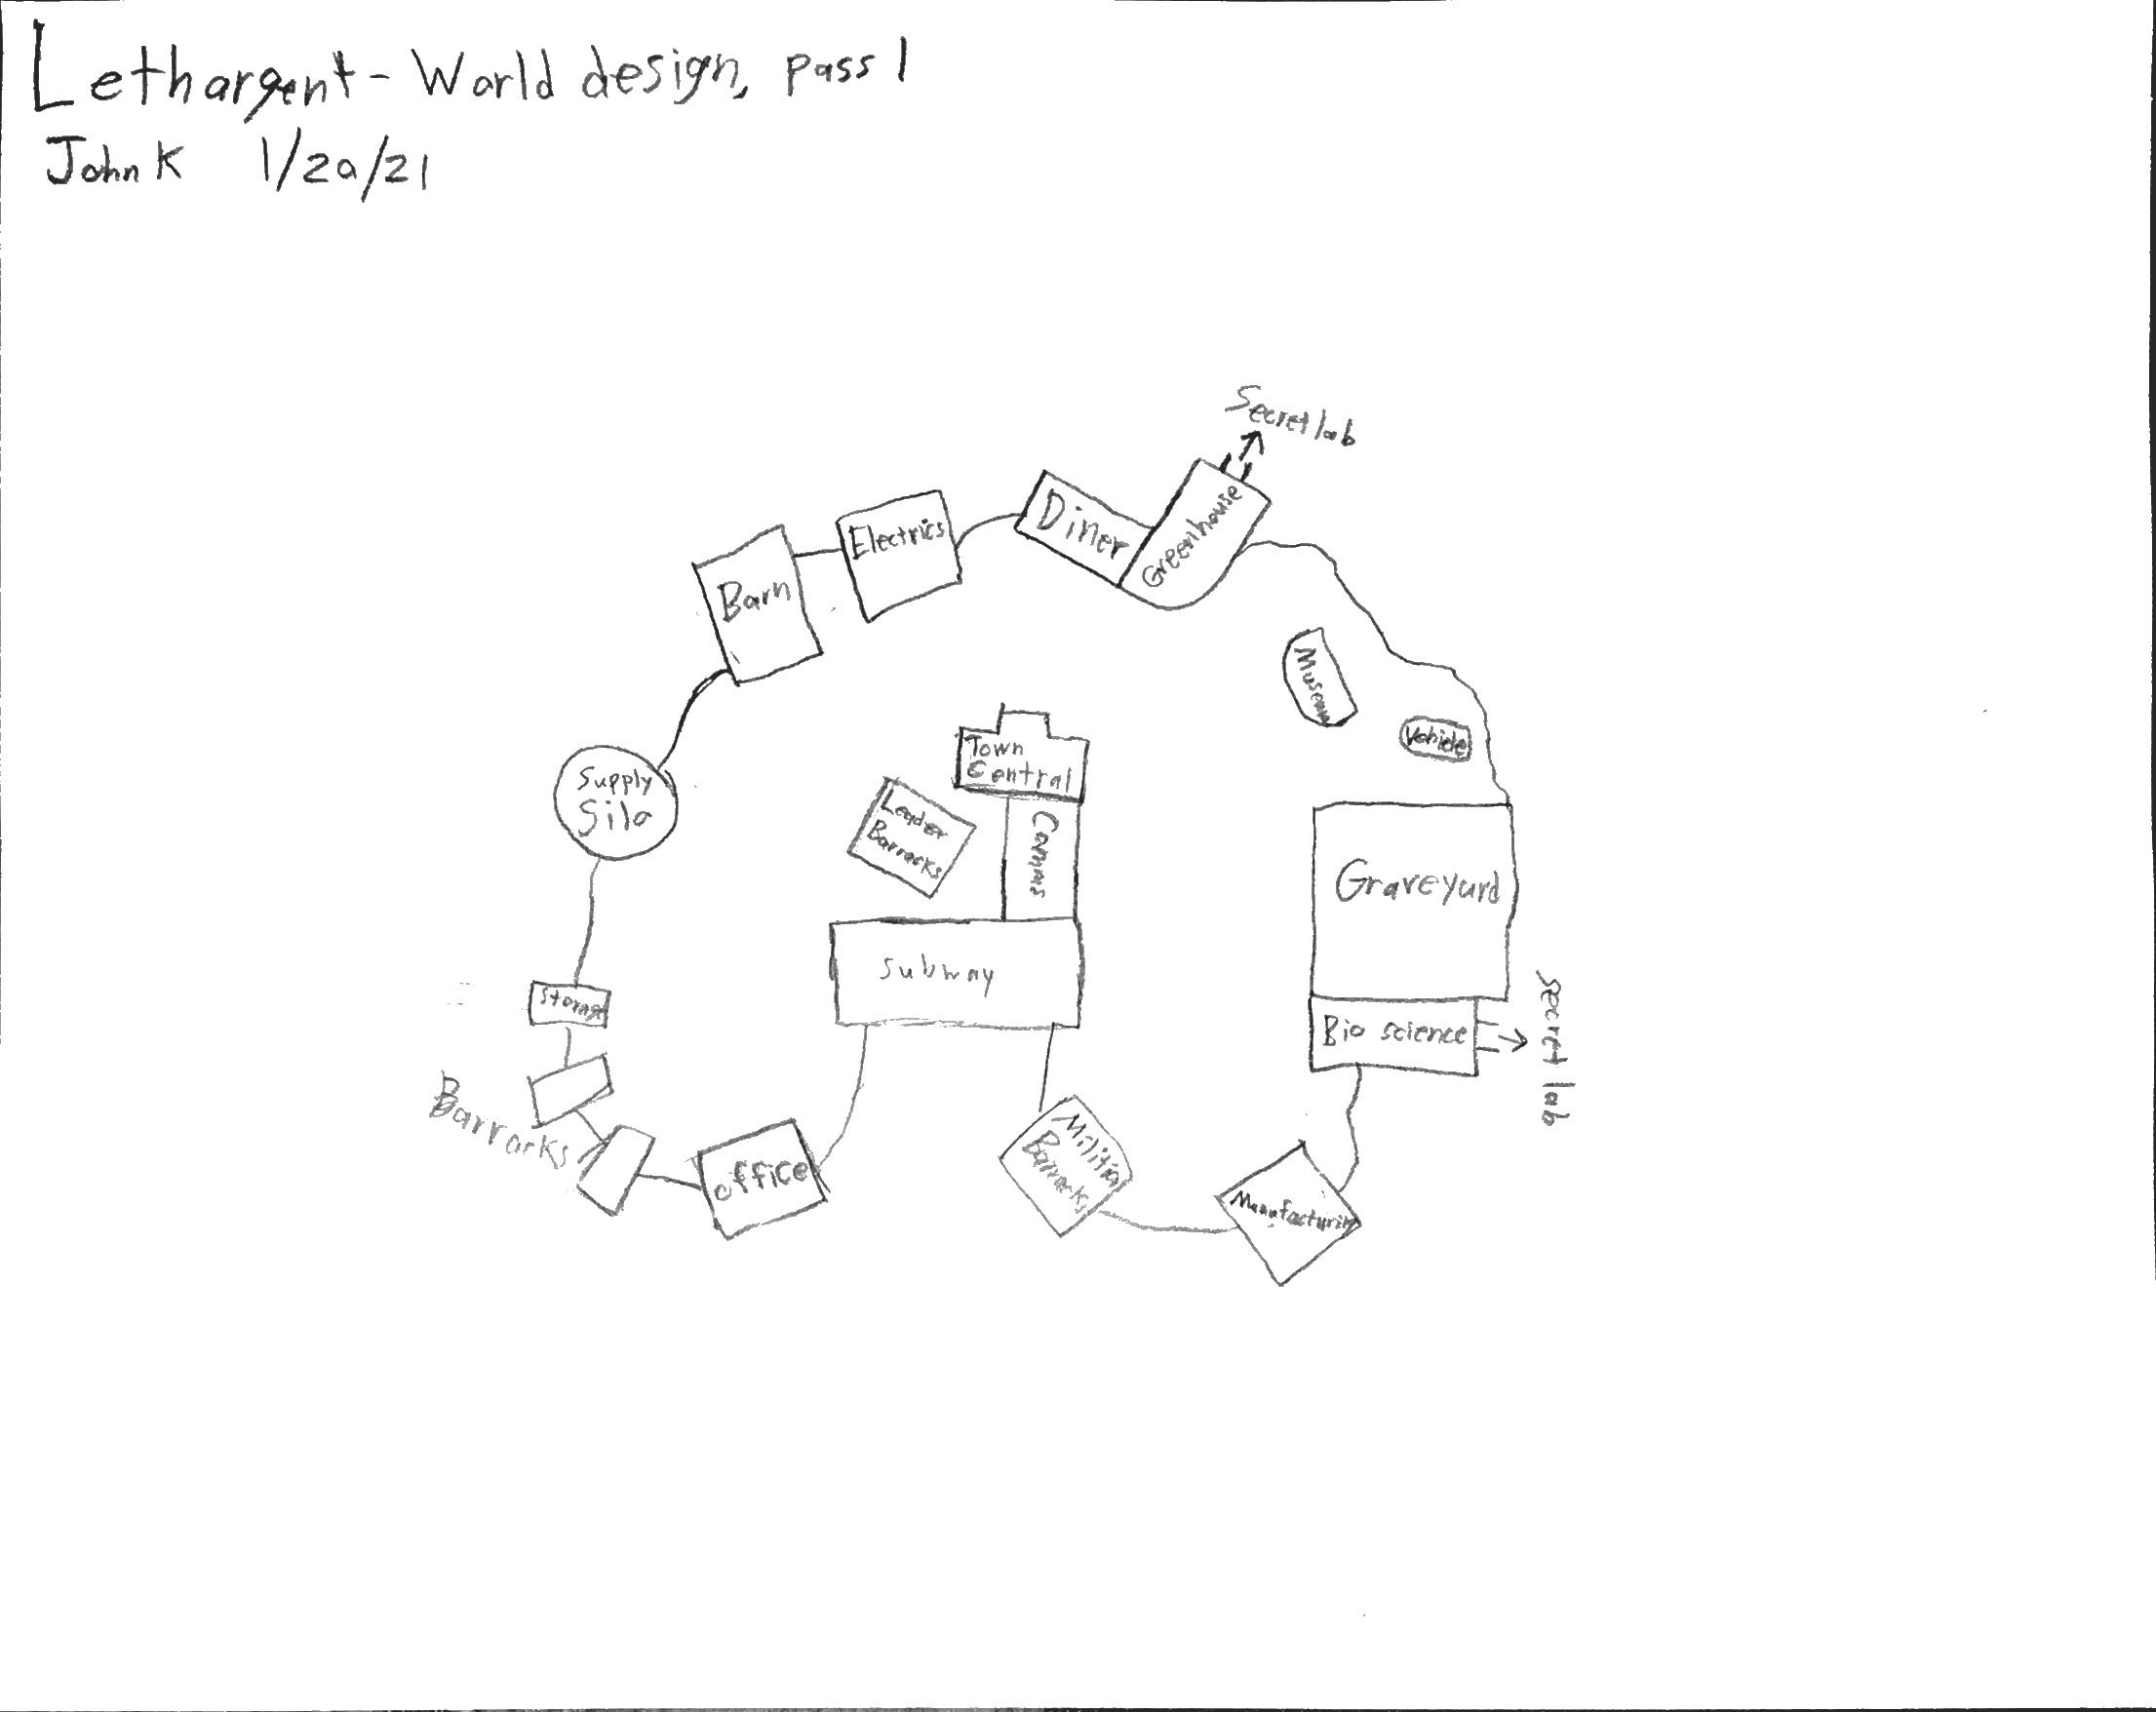 Lethargent - World design, pass 1
John K 1/20/21
Secret lab
Diner
Greenhouse
Electrics
Barn
Museum
Vehicle
Town
Central
Supply
Silo
Leader
Barracks
Comms
Graveyard
Subway
Storage
Bio science
Secret lab
Barracks
office
Militia
Barracks
Manufacturing